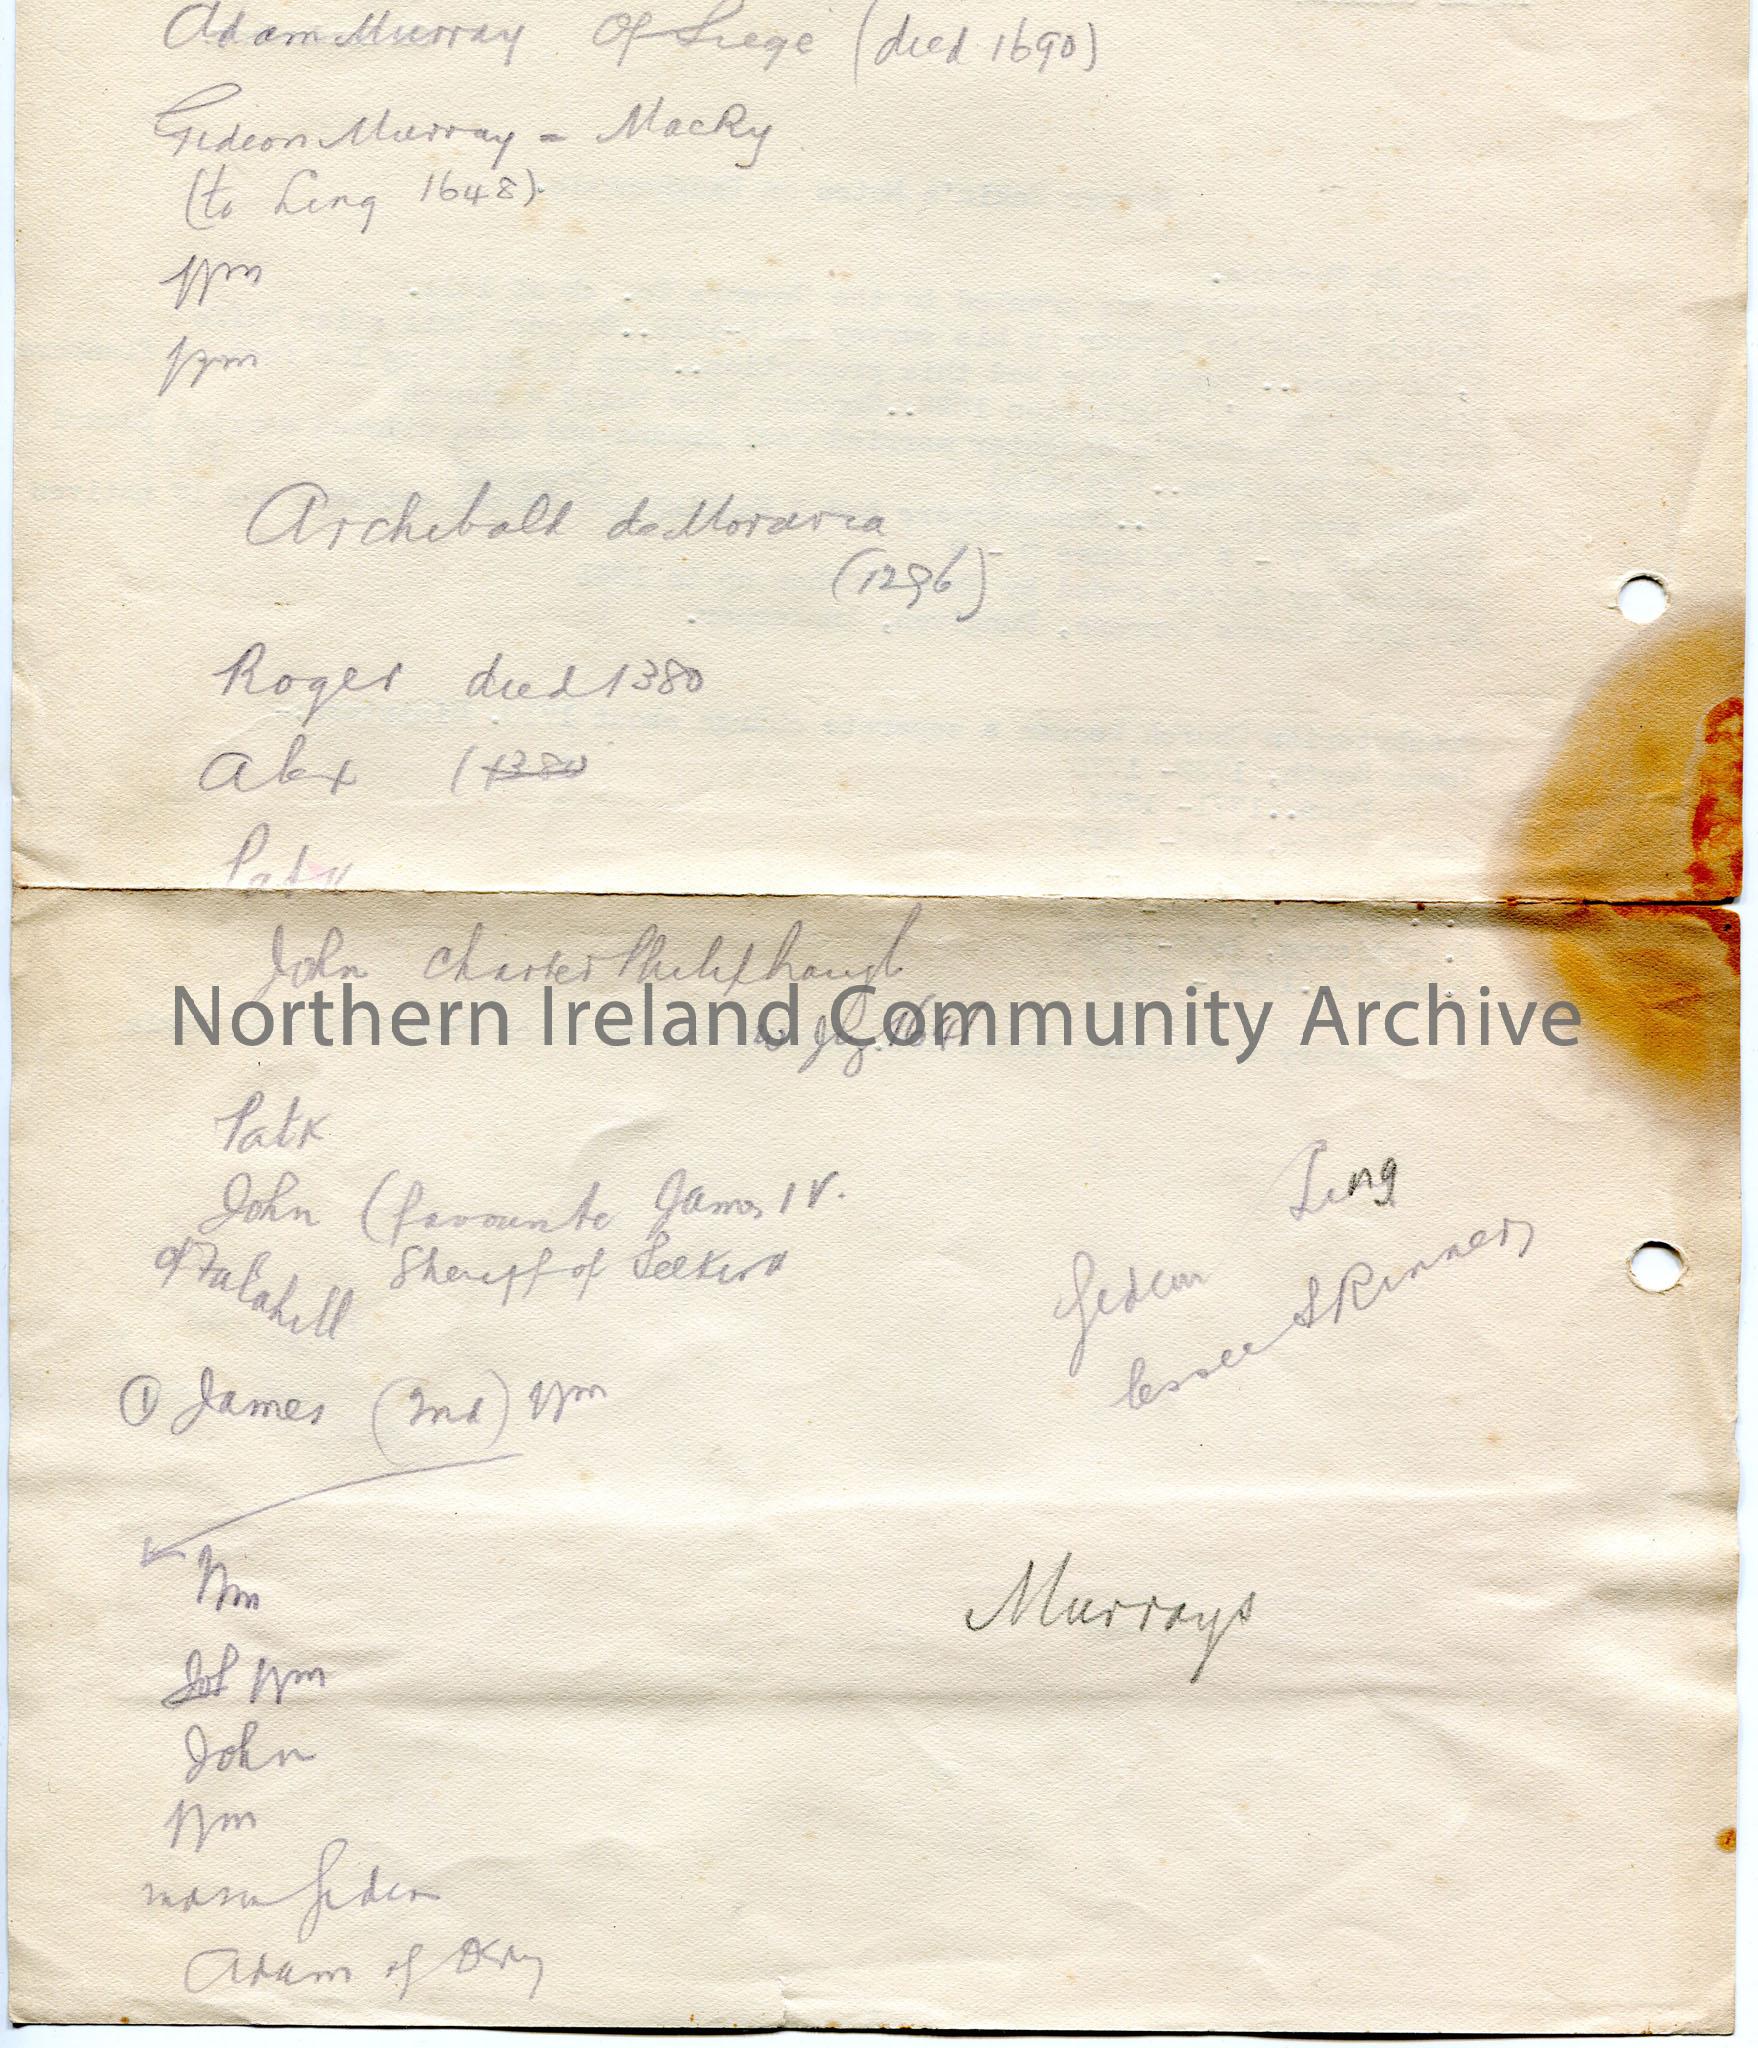 Adam Murray Of Siege (died 1690)
Gideon Murray = MacKy
(to Ling 1648)
Wm
Wm
Archibald de Moravia
(1296)
Roger died 1380
Alex (1380
Patk
John Charter Philiphaugh
Northern Ireland Community Archive
Patk
John (favourite James IV.
of Falahill Sheriff of Selkirk
Ling
Gideon
lessee Skinners
① James (2nd) Wm
Wm
Murrays
Wm
John
Wm
Gideon
Adam of